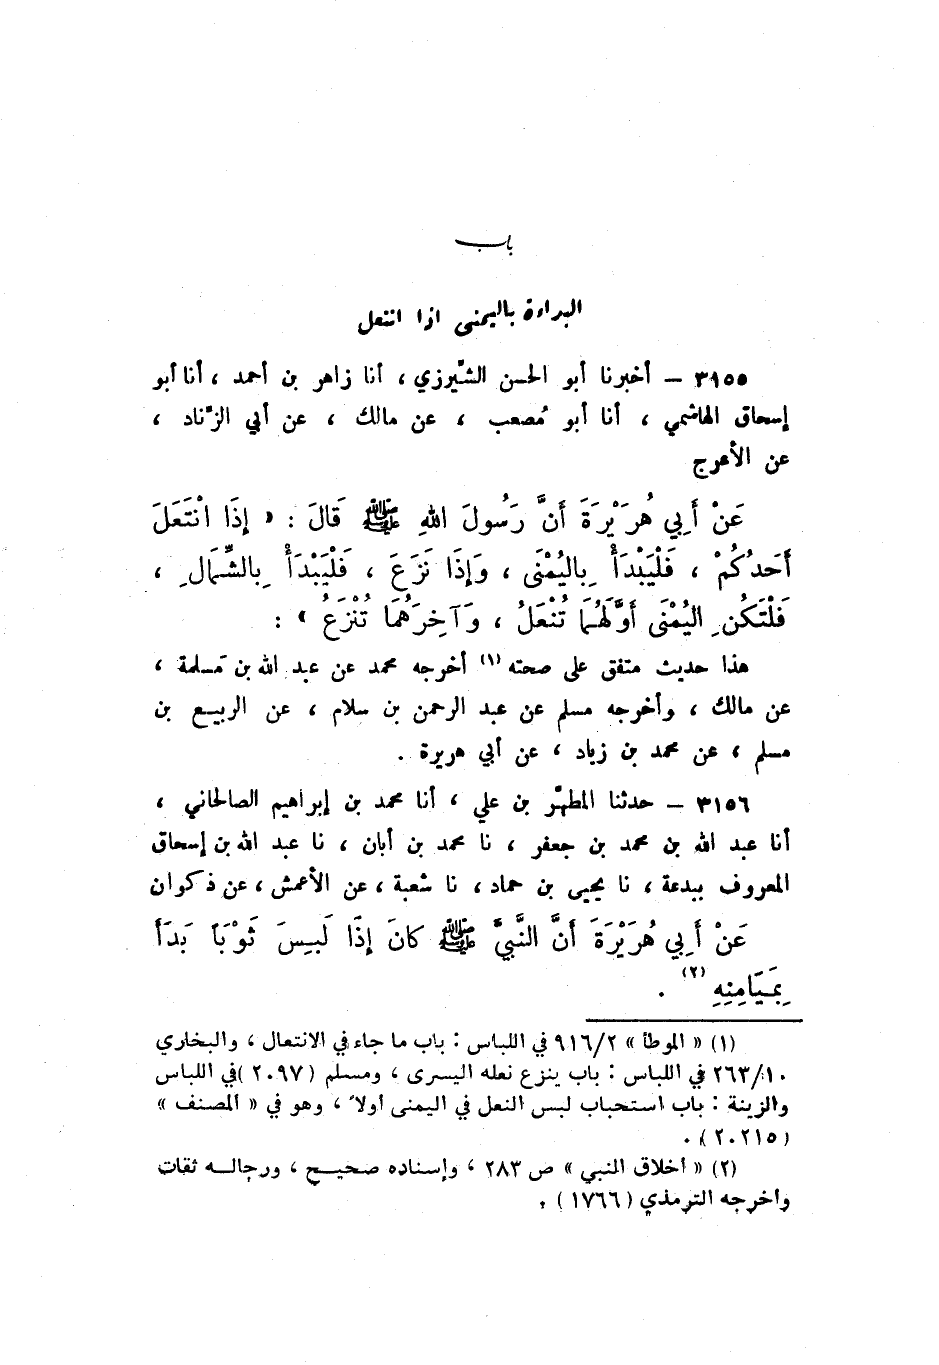 باب
البداءة باليمنى اذا انتعل
٣١٥٥ – أخبرنا أبو الحسن الشّيرزي ، أنا زاهر بن أحمد ، أنا أبو
إسحاق الهاشمي ، أنا أبو مُصعب ، عن مالك ، عن أبي الزّناد ،
عن الأعرج
عَنْ أَبِي هُرَيْرَةَ أَنَّ رَسُولَ اللهِ ﷺ قَالَ : « إِذَا انْتَعَلَ
أَحَدُكُمْ ، فَلْيَبْدَأْ بِاليُمْنَى ، وَإِذَا نَزَعَ ، فَلْيَبْدَأْ بِالشِّمَالِ ،
فَلْتَكُنِ اليُمْنَى أَوَّلَهُمَا تُنْعَلُ ، وَآخِرَهُمَا تُنْزَعُ » :
هذا حديث متفق على صحته (١) أخرجه محمد عن عبد الله بن مَسلمة ،
عن مالك ، وأخرجه مسلم عن عبد الرحمن بن سلام ، عن الربيع بن
مسلم ، عن محمد بن زياد ، عن أبي هريرة .
٣١٥٦ – حدثنا المطهّر بن علي ، أنا محمد بن إبراهيم الصالحاني ،
أنا عبد الله بن محمد بن جعفر ، نا محمد بن أبان ، نا عبد الله بن إسحاق
المعروف ببدعة ، نا يحيى بن حماد ، نا شعبة ، عن الأعمش ، عن ذكوان
عَنْ أَبِي هُرَيْرَةَ أَنَّ النَّبِيَّ ﷺ كَانَ إِذَا لَبِسَ ثَوْبَاً بَدَأَ
بِمَيَامِنِهِ (٢) .
(١) « الموطأ » ٩١٦/٢ في اللباس : باب ما جاء في الانتعال ، والبخاري
٢٦٣/١٠ في اللباس : باب ينزع نعله اليسرى ، ومسلم (٢٠٩٧) في اللباس
والزينة : باب استحباب لبس النعل في اليمنى أولاً ، وهو في « المصنف »
(٢٠٢١٥) .
(٢) « أخلاق النبي » ص ٢٨٣ ، وإسناده صحيح ، ورجاله ثقات
وأخرجه الترمذي (١٧٦٦) .